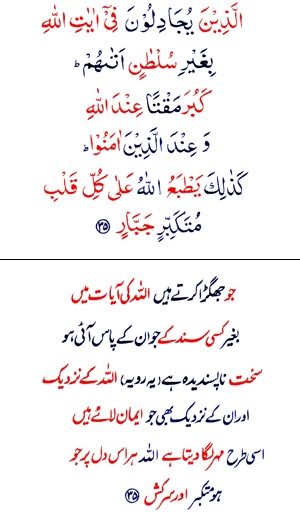 الَّذِیْنَ یُجَادِلُوْنَ فِیْۤ اٰیٰتِ اللّٰهِ
بِغَیْرِ سُلْطٰنٍ اَتٰىهُمْ ؕ
كَبُرَ مَقْتًا عِنْدَ اللّٰهِ
وَ عِنْدَ الَّذِیْنَ اٰمَنُوْا ؕ
كَذٰلِكَ یَطْبَعُ اللّٰهُ عَلٰى كُلِّ قَلْبِ
مُتَكَبِّرٍ جَبَّارٍ ﴿۳۵﴾
جو جھگڑا کرتے ہیں اللہ کی آیات میں
بغیر کسی سند کے جو ان کے پاس آئی ہو
سخت ناپسندیدہ ہے (یہ رویہ) اللہ کے نزدیک
اور ان کے نزدیک بھی جو ایمان لائے ہیں
اسی طرح مہر لگا دیتا ہے اللہ ہر اس دل پر جو
ہو متکبر اور سرکش ﴿۳۵﴾